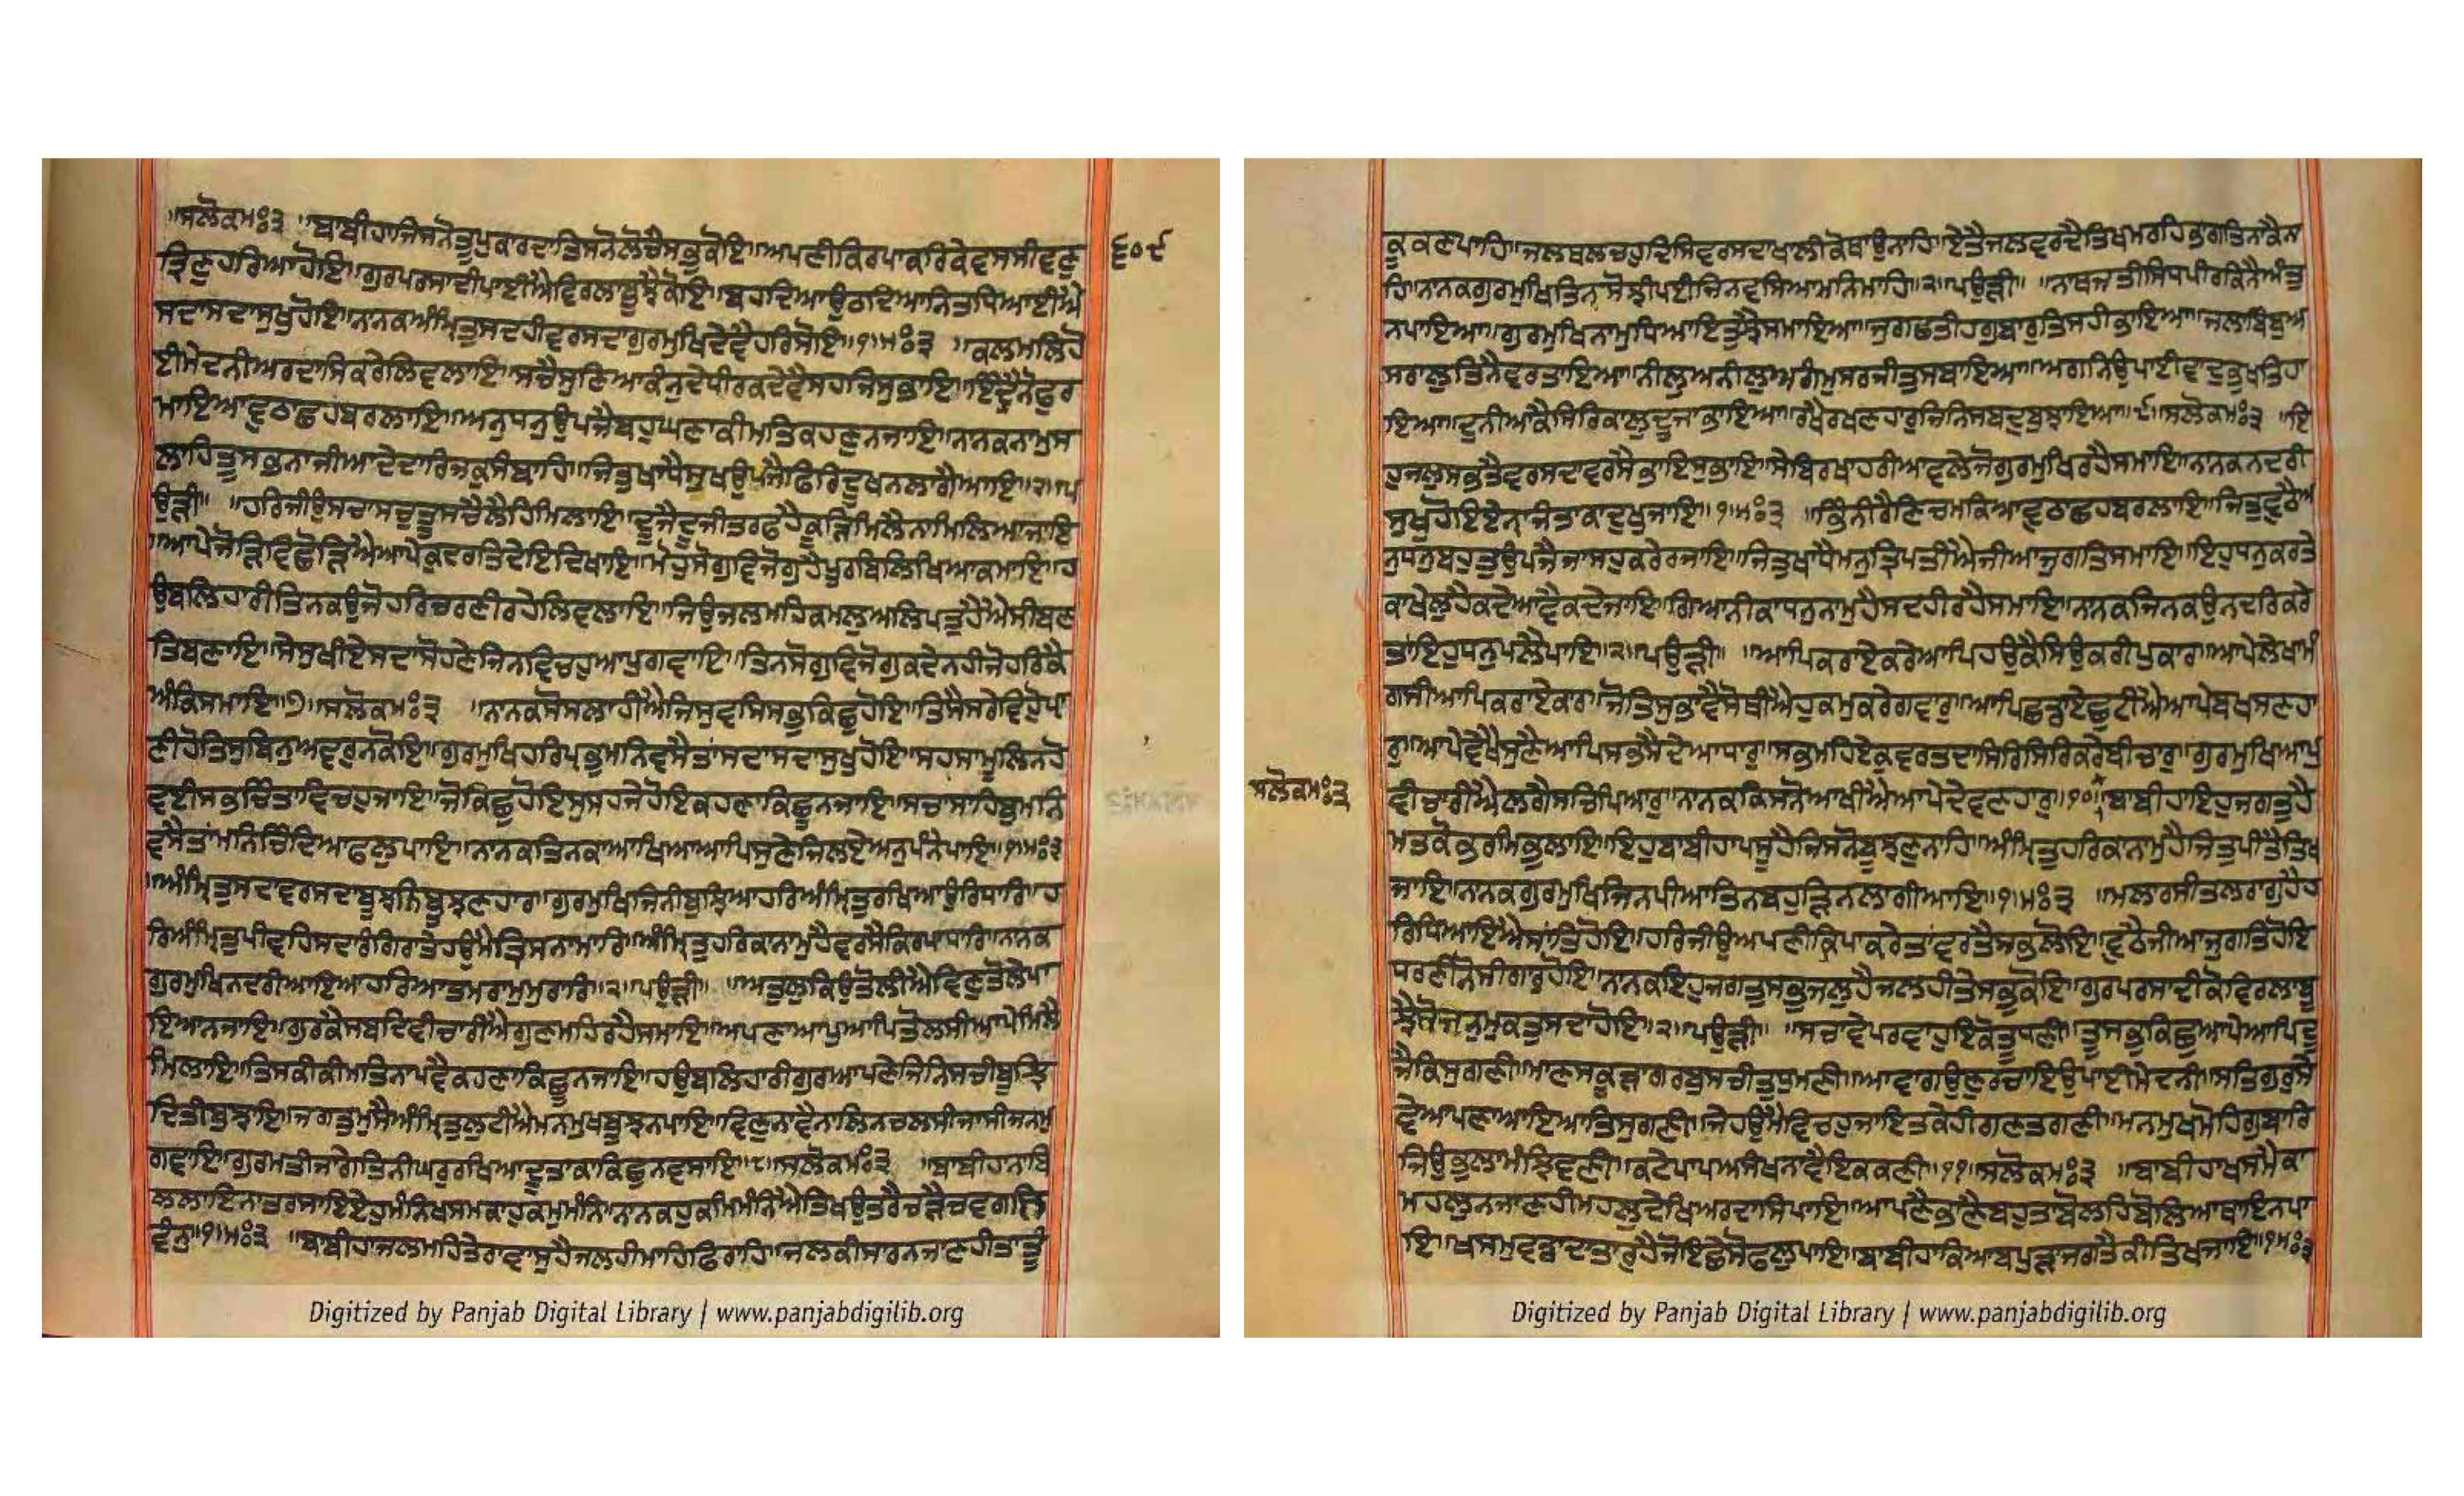 ॥ਸਲੋਕਮਃ੩ ॥ਬਾਬੀਹਾਜਿਸਨੋਤੂਪੁਕਾਰਦਾਤਿਸਨੋਲੋਚੈਸਭੁਕੋਇ॥ਅਪਣੀਕਿਰਪਾਕਰਿਕੈਵਸਸੀਵਣੁ
ਤ੍ਰਿਣੁਹਰਿਆਹੋਇ॥ਗੁਰਪਰਸਾਦੀਪਾਈਐਵਿਰਲਾਬੂਝੈਕੋਇ॥ਬਹਦਿਆਉਠਦਿਆਨਿਤਧਿਆਈਐ
ਸਦਾਸਦਾਸੁਖੁਹੋਇ॥ਨਾਨਕਅੰਮ੍ਰਿਤੁਸਦਹੀਵਰਸਦਾਗੁਰਮੁਖਿਦੇਵੈਹਰਿਸੋਇ॥੧॥ਮਃ੩ ॥ਕਲਮਲਿਹੋ
ਈਮੇਦਨੀਅਰਦਾਸਿਕਰੇਲਿਵਲਾਇ॥ਸਚੈਸੁਣਿਆਕੰਨੁਦੇਧੀਰਕਦੇਵੈਸਹਜਿਸੁਭਾਇ॥ਇੰਦ੍ਰੈਨੋਫੁਰ
ਮਾਇਆਵੁਠਾਛਹਬਰਲਾਇ॥ਅਨੁਧਨੁਉਪਜੈਬਹੁਘਣਾਕੀਮਤਿਕਹਣੁਨਜਾਇ॥ਨਾਨਕਨਾਮੁਸ
ਲਾਹਿਤੂਸਭਨਾਜੀਆਦੇਦਾਰਿਜਕੁਸੰਬਾਹਿ॥ਜਿਤੁਖਾਧੈਸੁਖਉਪਜੈਫਿਰਿਦੂਖਨਲਾਗੈਆਇ॥੨॥ਪ
ਉੜੀ॥ ॥ਹਰਿਜੀਉਸਚਾਸਚੁਤੂਸਚੈਲੈਹਿਮਿਲਾਇ॥ਦੂਜੈਦੂਜੀਤਰਫਹੈਕੂੜਿਮਿਲੈਨਮਿਲਿਆਜਾਇ
॥ਆਪੇਜੋੜਿਵਿਛੋੜਿਐਆਪੇਕੁਦਰਤਿਦੇਇਦਿਖਾਇ॥ਮੋਹੁਸੋਗੁਵਿਜੋਗੁਹੈਪੂਰਬਿਲਿਖਿਆਕਮਾਇ॥ਹ
ਉਬਲਿਹਾਰੀਤਿਨਕਉਜੋਹਰਿਚਰਣੀਰਹੈਲਿਵਲਾਇ॥ਜਿਉਜਲਮਹਿਕਮਲੁਅਲਿਪਤੁਹੈਐਸੀਬਣ
ਤਿਬਣਾਇ॥ਸੇਸੁਖੀਏਸਦਾਸੋਹਣੇਜਿਨਵਿਚਹੁਆਪੁਗਵਾਇ॥ਤਿਨਸੋਗੁਵਿਜੋਗੁਕਦੇਨਹੀਜੋਹਰਿਕੈ
ਅੰਕਿਸਮਾਇ॥੭॥ਸਲੋਕਮਃ੩ ॥ਨਾਨਕਸੋਸਲਾਹੀਐਜਿਸੁਵਸਿਸਭੁਕਿਛੁਹੋਇ॥ਤਿਸੈਸਰੇਵਿਹੁਪ੍ਰਾ
ਣੀਹੋਤਿਸੁਬਿਨੁਅਵਰੁਨਕੋਇ॥ਗੁਰਮੁਖਿਹਰਿਪ੍ਰਭੁਮਨਿਵਸੈਤਾਂਸਦਾਸਦਾਸੁਖੁਹੋਇ॥ਸਹਸਾਮੂਲਿਨਹੋ
ਵਈਸਭਚਿੰਤਾਵਿਚਹੁਜਾਇ॥ਜੋਕਿਛੁਹੋਇਸੁਸਹਜੇਹੋਇਕਹਣਾਕਿਛੂਨਜਾਇ॥ਸਚਾਸਾਹਿਬੁਮਨਿ
ਵਸੈਤਾਂਮਨਿਚਿੰਦਿਆਫਲੁਪਾਇ॥ਨਾਨਕਤਿਨਕਾਆਖਿਆਆਪਿਸੁਣੇਜਿਲਇਅਨੁਪੰਨੈਪਾਇ॥੧॥ਮਃ੩
॥ਅੰਮ੍ਰਿਤੁਸਦਾਵਰਸਦਾਬੂਝਨਿਬੂਝਣਹਾਰ॥ਗੁਰਮੁਖਿਜਿਨੀਬੁਝਿਆਹਰਿਅੰਮ੍ਰਿਤੁਰਖਿਆਉਰਿਧਾਰਿ॥ਹ
ਰਿਅੰਮ੍ਰਿਤੁਪੀਵਹਿਸਦਾਰੰਗਿਰਾਤੇਹਉਮੈਤ੍ਰਿਸਨਾਮਾਰਿ॥ਅੰਮ੍ਰਿਤੁਹਰਿਕਾਨਾਮੁਹੈਵਰਸੈਕਿਰਪਾਧਾਰਿ॥ਨਾਨਕ
ਗੁਰਮੁਖਿਨਦਰੀਆਇਆਹਰਿਆਤਮਰਾਮੁਮੁਰਾਰਿ॥੨॥ਪਉੜੀ॥ ॥ਅਤੁਲੁਕਿਉਤੋਲੀਐਵਿਣੁਤੋਲੇਪਾ
ਇਆਨਜਾਇ॥ਗੁਰਕੈਸਬਦਿਵੀਚਾਰੀਐਗੁਣਮਹਿਰਹੈਸਮਾਇ॥ਅਪਣਾਆਪੁਆਪਿਤੋਲਸੀਆਪੇਮਿਲੈ
ਮਿਲਾਇ॥ਤਿਸਕੀਕੀਮਤਿਨਪਵੈਕਹਣਾਕਿਛੂਨਜਾਇ॥ਹਉਬਲਿਹਾਰੀਗੁਰਆਪਣੇਜਿਨਿਸਚੀਬੂਝ
ਦਿਤੀਬੁਝਾਇ॥ਜਗਤੁਮੁਸੈਅੰਮ੍ਰਿਤੁਲੁਟੀਐਮਨਮੁਖਬੂਝਨਪਾਇ॥ਵਿਣੁਨਾਵੈਨਾਲਿਨਚਲਸੀਜਾਸੀਜਨਮੁ
ਗਵਾਇ॥ਗੁਰਮਤੀਜਾਗੇਤਿਨੀਘਰੁਰਖਿਆਦੂਤਾਕਾਕਿਛੁਨਵਸਾਇ॥੮॥ਸਲੋਕਮਃ੩ ॥ਬਾਬੀਹਾਨਾਬਿ
ਲਲਾਇਨਾਤਰਸਾਇਏਹੁਮੰਨਿਖਸਮਕਾਹੁਕਮੁਮੰਨਿ॥ਨਾਨਕਹੁਕਮਿਮੰਨਿਐਤਿਖਉਤਰੈਚੜੈਚਵਗਲਿ
ਵੰਨੁ॥੧॥ਮਃ੩ ॥ਬਾਬੀਹਾਜਲਮਹਿਤੇਰਾਵਾਸੁਹੈਜਲਹੀਮਾਹਿਫਿਰਾਹਿ॥ਜਲਕੀਸਾਰਨਜਾਣਹੀਤਾਤੂੰ
੬੦੯
ਕੂਕਣਪਾਹਿ॥ਜਲਥਲਚਹੁਦਿਸਿਵਰਸਦਾਖਾਲੀਕੋਥਾਉਨਾਹਿ॥ਏਤੈਜਲਵਰਦੈਤਿਖਮਰਹਿਭਾਗਤਿਨਾਕੈਨਾ
ਹਿ॥ਨਾਨਕਗੁਰਮੁਖਿਤਿਨਸੋਝੀਪਈਜਿਨਵਸਿਆਮਨਿਮਾਹਿ॥੨॥ਪਉੜੀ॥ ॥ਨਾਥਜਤੀਸਿਧਪੀਰਕਿਨੈਅੰਤੁ
ਨਪਾਇਆ॥ਗੁਰਮੁਖਿਨਾਮੁਧਿਆਇਤੁਝੈਸਮਾਇਆ॥ਜੁਗਛਤੀਹਗੁਬਾਰੁਤਿਸਹੀਭਾਇਆ॥ਜਲਾਬਿੰਬੁਅ
ਸਰਾਲੁਤਿਨੈਵਰਤਾਇਆ॥ਨੀਲੁਅਨੀਲੁਅਗੰਮੁਸਰਜੀਤੁਸਬਾਇਆ॥ਅਗਨਿਉਪਾਈਵਾਦੁਭੁਖਤਿਹਾ
ਇਆ॥ਦੁਨੀਆਕੈਸਿਰਿਕਾਲੁਦੂਜਾਭਾਇਆ॥ਰਖੈਰਖਣਹਾਰੁਜਿਨਿਸਬਦੁਬੁਝਾਇਆ॥੯॥ਸਲੋਕਮਃ੩ ॥ਇ
ਹੁਜਲੁਸਭਤੈਵਰਸਦਾਵਰਸੈਭਾਇਸੁਭਾਇ॥ਸੇਬਿਰਖਾਹਰੀਆਵਲੇਜੋਗੁਰਮੁਖਿਰਹੈਸਮਾਇ॥ਨਾਨਕਨਦਰੀ
ਸੁਖੁਹੋਇਏਨਾਜੰਤਾਕਾਦੁਖੁਜਾਇ॥੧॥ਮਃ੩ ॥ਭਿੰਨੀਰੈਣਿਚਮਕਿਆਵੁਠਾਛਹਬਰਲਾਇ॥ਜਿਤੁਵੁਠੈਅ
ਨੁਧਨੁਬਹੁਤੁਉਪਜੈਜਾਸਹੁਕਰੇਰਜਾਇ॥ਜਿਤੁਖਾਧੈਮਨੁਤ੍ਰਿਪਤੀਐਜੀਆਜੁਗਤਿਸਮਾਇ॥ਇਹੁਧਨੁਕਰਤੇ
ਕਾਖੇਲੁਹੈਕਦੇਆਵੈਕਦੇਜਾਇ॥ਗਿਆਨੀਕਾਧਨੁਨਾਮੁਹੈਸਦਹੀਰਹੈਸਮਾਇ॥ਨਾਨਕਜਿਨਕਉਨਦਰਿਕਰੇ
ਤਾਂਇਹੁਧਨੁਪਲੈਪਾਇ॥੨॥ਪਉੜੀ॥ ॥ਆਪਿਕਰਾਏਕਰੇਆਪਿਹਉਕੈਸਿਉਕਰੀਪੁਕਾਰ॥ਆਪੇਲੇਖਾਮੰ
ਗਸੀਆਪਿਕਰਾਏਕਾਰ॥ਜੋਤਿਸੁਭਾਵੈਸੋਥੀਐਹੁਕਮੁਕਰੇਗਾਵਾਰੁ॥ਆਪਿਛਡਾਏਛੁਟੀਐਆਪੇਬਖਸਣਹਾ
ਰੁ॥ਆਪੇਵੇਖੈਸੁਣੈਆਪਿਸਭਸੈਦੇਆਧਾਰੁ॥ਸਭਮਹਿਏਕੁਵਰਤਦਾਸਿਰਿਸਿਰਿਕਰੇਬੀਚਾਰੁ॥ਗੁਰਮੁਖਿਆਪੁ
ਵੀਚਾਰੀਐਲਗੈਸਚਿਪਿਆਰੁ॥ਨਾਨਕਕਿਸਨੋਆਖੀਐਆਪੇਦੇਵਣਹਾਰੁ॥੧੦॥ਬਾਬੀਹਾਇਹੁਜਗਤੁਹੈ
ਸਲੋਕਮਃ੩
ਮਤਕੋਭਰਮਿਭੁਲਾਇ॥ਇਹੁਬਾਬੀਹਾਪਸੂਹੈਜਿਸਨੋਬੂਝਣੁਨਾਹਿ॥ਅੰਮ੍ਰਿਤੁਹਰਿਕਾਨਾਮੁਹੈਜਿਤੁਪੀਤੈਤਿਖ
ਜਾਇ॥ਨਾਨਕਗੁਰਮੁਖਿਜਿਨਪੀਆਤਿਨਬਹੁੜਿਨਲਾਗੀਆਇ॥੧॥ਮਃ੩ ॥ਮਲਾਰਸੀਤਲਰਾਗੁਹੈਹ
ਰਿਧਿਆਇਐਸਾਂਤਿਹੋਇ॥ਹਰਿਜੀਉਅਪਣੀਕ੍ਰਿਪਾਕਰੇਤਾਂਵਰਤੈਸਭਲੋਇ॥ਵੁਠੈਜੀਆਜੁਗਤਿਹੋਇ
ਧਰਣੀਨੋਸੀਗਾਰੁਹੋਇ॥ਨਾਨਕਇਹੁਜਗਤੁਸਭੁਜਲੁਹੈਜਲਹੀਤੇਸਭੁਕੋਇ॥ਗੁਰਪਰਸਾਦੀਕੋਵਿਰਲਾਬੂ
ਝੈਸੋਜਨੁਮੁਕਤੁਸਦਾਹੋਇ॥੨॥ਪਉੜੀ॥ ॥ਸਚਾਵੇਪਰਵਾਹੁਇਕੋਤੂਧਣੀ॥ਤੂਸਭੁਕਿਛੁਆਪੇਆਪਿਦੂ
ਜੈਕਿਸੁਗਣੀ॥ਮਾਣਸਕੂੜਾਗਰਬੁਸਚੀਤੁਧੁਮਣੀ॥ਆਵਾਗਉਣੁਰਚਾਇਉਪਾਈਮੇਦਨੀ॥ਸਤਿਗੁਰੁਸੇ
ਵੇਆਪਣਾਆਇਆਤਿਸੁਗਣੀ॥ਜੇਹਉਮੈਵਿਚਹੁਜਾਇਤਕੇਹੀਗਣਤਗਣੀ॥ਮਨਮੁਖਮੋਹਿਗੁਬਾਰਿ
ਜਿਉਭੁਲਾਮੰਝਿਵਣੀ॥ਕਟੇਪਾਪਅਸੰਖਨਾਵੈਇਕਕਣੀ॥੧੧॥ਸਲੋਕਮਃ੩ ॥ਬਾਬੀਹਾਖਸਮੈਕਾ
ਮਹਲੁਨਜਾਣਹੀਮਹਲੁਦੇਖਿਅਰਦਾਸਿਪਾਇ॥ਆਪਣੈਭਾਣੈਬਹੁਤਾਬੋਲਹਿਬੋਲਿਆਥਾਇਨਪਾ
ਇ॥ਖਸਮੁਵਡਾਦਾਤਾਰੁਹੈਜੋਇਛੇਸੋਫਲੁਪਾਇ॥ਬਾਬੀਹਾਕਿਆਬਪੁੜਾਜਗਤੈਕੀਤਿਖਜਾਇ॥੧॥ਮਃ੩
Digitized by Panjab Digital Library | www.panjabdigilib.org
Digitized by Panjab Digital Library | www.panjabdigilib.org